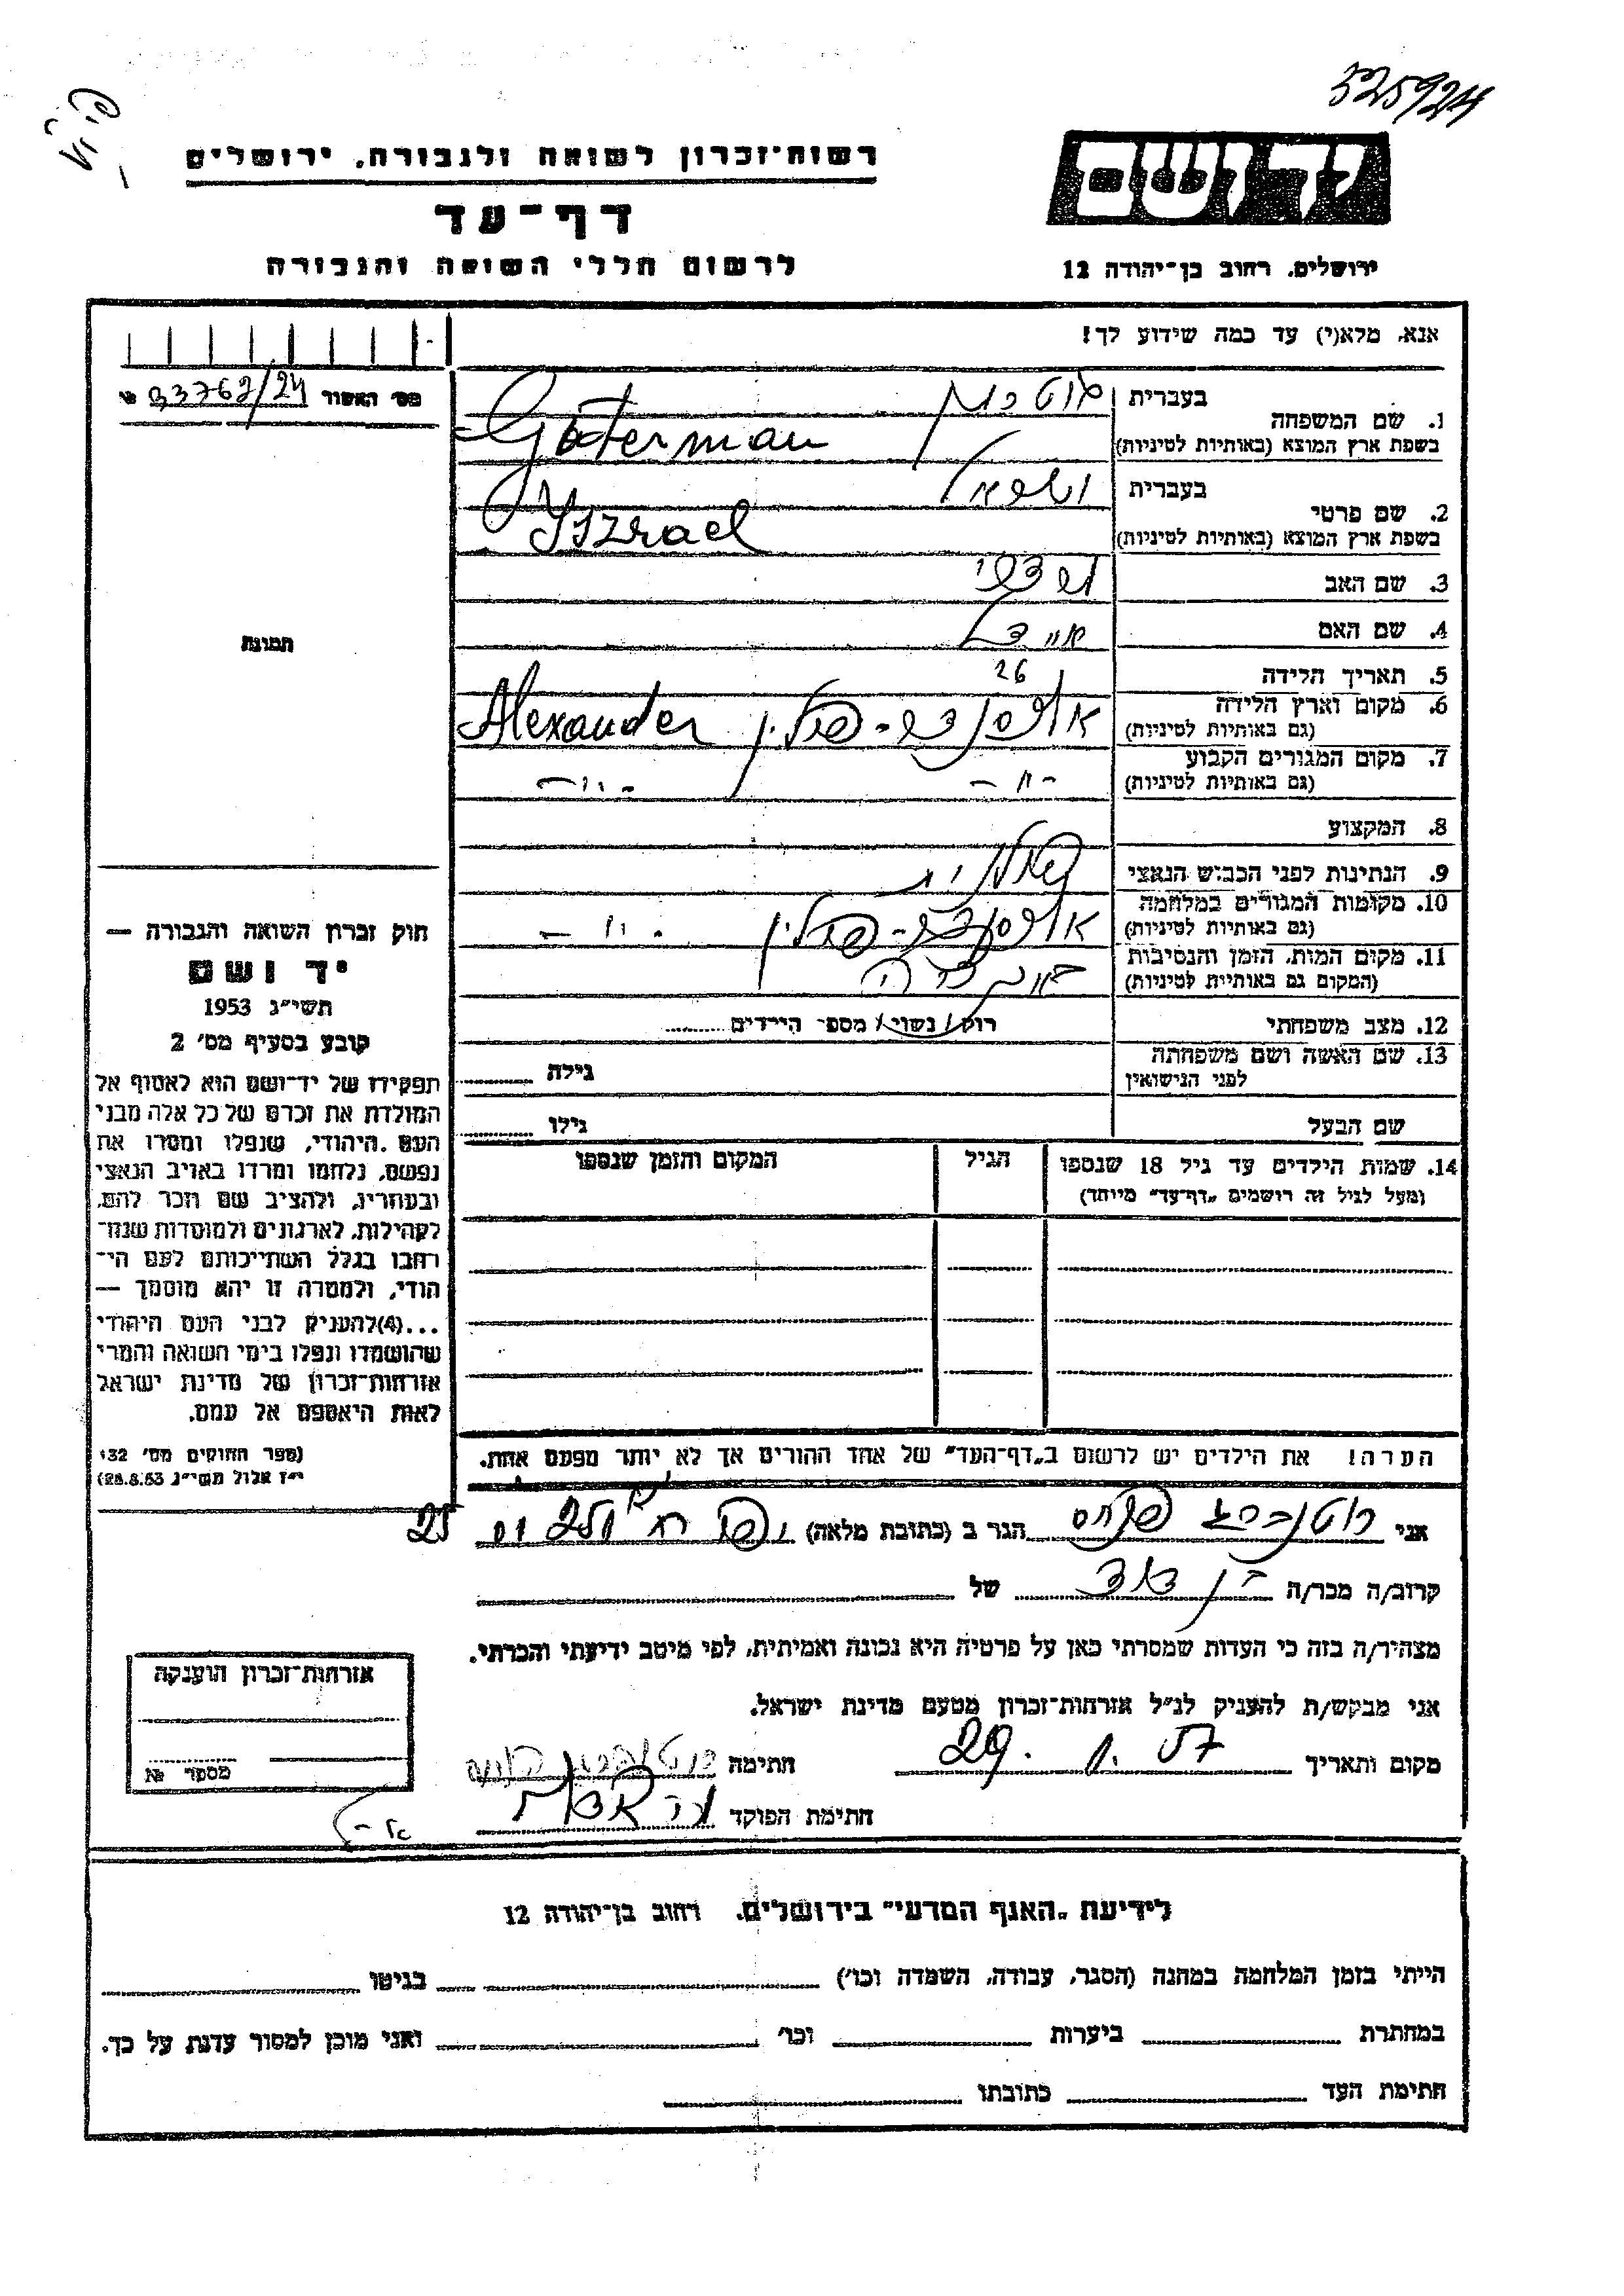 325924
רשות-זכרון לשואה ולגבורה, ירושלים
יד ושם
דף-עד
לרשום חללי השואה והגבורה
ירושלים, רחוב בן-יהודה 12
אנא, מלא(י) עד כמה שידוע לך!
מס' האסור 93762/24
1. שם המשפחה
בעברית גוטרמן
בשפת ארץ המוצא (באותיות לטיניות) Guterman
2. שם פרטי
בעברית ישראל
בשפת ארץ המוצא (באותיות לטיניות) Iszrael
3. שם האב
4. שם האם
5. תאריך הלידה 26
6. מקום וארץ הלידה
(גם באותיות לטיניות) אלכסנדר - פולין Alexander
7. מקום המגורים הקבוע
(גם באותיות לטיניות) -"- -"-
8. המקצוע
9. הנתינות לפני הכבוש הנאצי פולנית
10. מקומות המגורים במלחמה
(גם באותיות לטיניות) אלכסנדר - פולין -"-
11. מקום המות, הזמן והנסיבות
(המקום גם באותיות לטיניות)
12. מצב משפחתי רווק / נשוי / מספר הילדים
13. שם האשה ושם משפחתה
לפני הנישואין
גילה
שם הבעל גילו
14. שמות הילדים עד גיל 18 שנספו הגיל המקום והזמן שנספו
(מעל לגיל זה רושמים "דף-עד" מיוחד)
הערה! את הילדים יש לרשום ב"דף-העד" של אחד ההורים אך לא יותר מפעם אחת.
תמונה
חוק זכרון השואה והגבורה —
יד ושם
תשי"ג 1953
קובע בסעיף מס' 2
תפקידו של יד-ושם הוא לאסוף אל
המולדת את זכרם של כל אלה מבני
העם היהודי, שנפלו ומסרו את
נפשם, נלחמו ומרדו באויב הנאצי
ובעוזריו, ולהציב שם וזכר להם,
לקהילות, לארגונים ולמוסדות שנח-
רבו בגלל השתייכותם לעם הי-
הודי, ולמטרה זו יהא מוסמך —
...(4)להעניק לבני העם היהודי
שהושמדו ונפלו בימי השואה והמרי
אזרחות-זכרון של מדינת ישראל
לאות היאספם אל עמם.
(ספר החוקים מס' 132
י"ז אלול תשי"ג 28.8.53)
אני רוטנברג פנחס הגר ב (כתובת מלאה) 25
קרוב/ה מכר/ה בן דוד של
מצהיר/ה בזה כי העדות שמסרתי כאן על פרטיה היא נכונה ואמיתית, לפי מיטב ידיעתי והכרתי.
אני מבקש/ת להעניק לנ"ל אזרחות-זכרון מטעם מדינת ישראל.
מקום ותאריך 29. 1. 57 חתימה רוטנברג פנחס
חתימת הפוקד
אזרחות-זכרון הוענקה
מספר №
לידיעת "האגף המדעי" בירושלים. רחוב בן-יהודה 12
הייתי בזמן המלחמה במחנה (הסגר, עבודה, השמדה וכו') בגיטו
במחתרת ביערות וכו' ואני מוכן למסור עדות על כך.
חתימת העד כתובתו